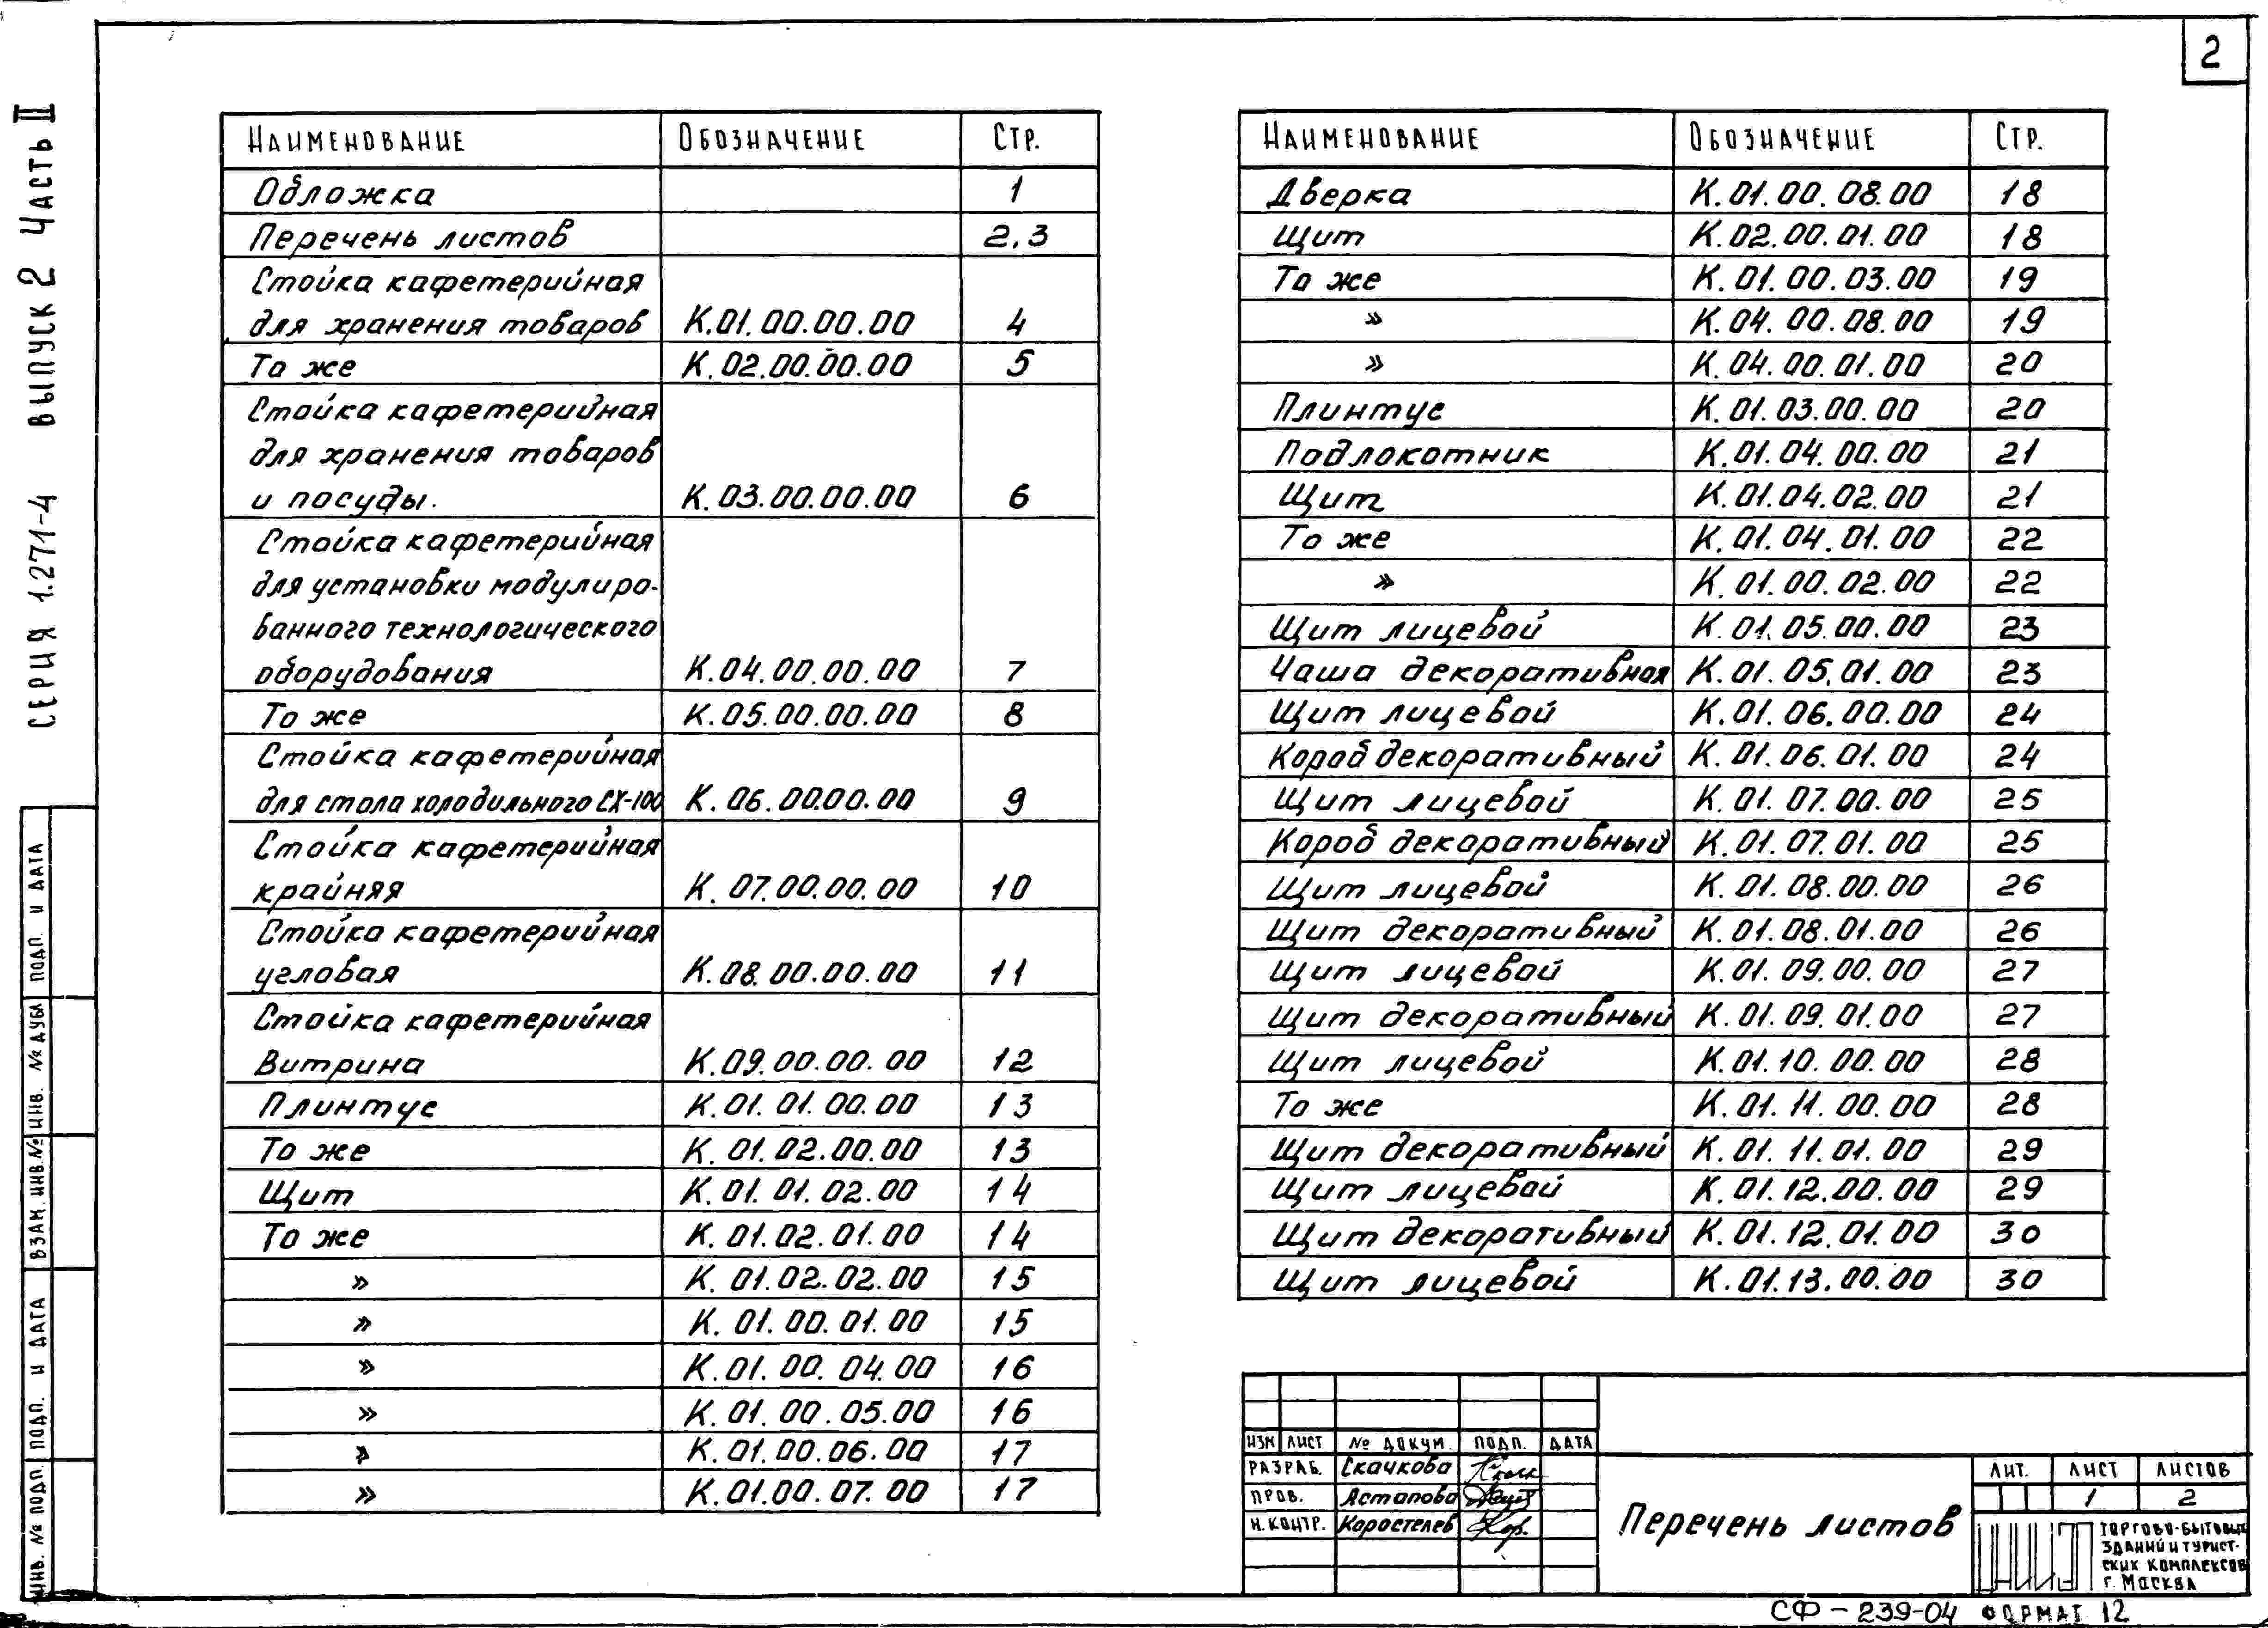 2
СЕРИЯ 1.271-4 ВЫПУСК 2 ЧАСТЬ II
НАИМЕНОВАНИЕ ОБОЗНАЧЕНИЕ СТР.
Обложка 1
Перечень листов 2.3
Стойка кафетерийная
для хранения товаров К.01.00.00.00 4
То же К.02.00.00.00 5
Стойка кафетерийная
для хранения товаров
и посуды. К.03.00.00.00 6
Стойка кафетерийная
для установки модулиро-
ванного технологического
оборудования К.04.00.00.00 7
То же К.05.00.00.00 8
Стойка кафетерийная
для стола холодильного СХ-100 К.06.00.00.00 9
Стойка кафетерийная
крайняя К.07.00.00.00 10
Стойка кафетерийная
угловая К.08.00.00.00 11
Стойка кафетерийная
Витрина К.09.00.00.00 12
Плинтус К.01.01.00.00 13
То же К.01.02.00.00 13
Щит К.01.01.02.00 14
То же К.01.02.01.00 14
» К.01.02.02.00 15
» К.01.00.01.00 15
» К.01.00.04.00 16
» К.01.00.05.00 16
» К.01.00.06.00 17
» К.01.00.07.00 17
НАИМЕНОВАНИЕ ОБОЗНАЧЕНИЕ СТР.
Дверка К.01.00.08.00 18
Щит К.02.00.01.00 18
То же К.01.00.03.00 19
» К.04.00.08.00 19
» К.04.00.01.00 20
Плинтус К.01.03.00.00 20
Подлокотник К.01.04.00.00 21
Щит К.01.04.02.00 21
То же К.01.04.01.00 22
» К.01.00.02.00 22
Щит лицевой К.01.05.00.00 23
Чаша декоративная К.01.05.01.00 23
Щит лицевой К.01.06.00.00 24
Короб декоративный К.01.06.01.00 24
Щит лицевой К.01.07.00.00 25
Короб декоративный К.01.07.01.00 25
Щит лицевой К.01.08.00.00 26
Щит декоративный К.01.08.01.00 26
Щит лицевой К.01.09.00.00 27
Щит декоративный К.01.09.01.00 27
Щит лицевой К.01.10.00.00 28
То же К.01.11.00.00 28
Щит декоративный К.01.11.01.00 29
Щит лицевой К.01.12.00.00 29
Щит декоративный К.01.12.01.00 30
Щит лицевой К.01.13.00.00 30
ИНВ. № ПОДЛ. ПОДП. И ДАТА ВЗАМ. ИНВ. № ИНВ. № ДУБЛ ПОДП. И ДАТА
ИЗМ ЛИСТ № ДОКУМ. ПОДП. ДАТА
РАЗРАБ. Скачкова
ПРОВ. Астапова
Н.КОНТР. Коростелев
Перечень листов
ЛИТ. ЛИСТ ЛИСТОВ
1 2
ЦНИИЭП
ТОРГОВО-БЫТОВЫХ
ЗДАНИЙ И ТУРИСТ-
СКИХ КОМПЛЕКСОВ
г. МОСКВА
СФ-239-04 ФОРМАТ 12